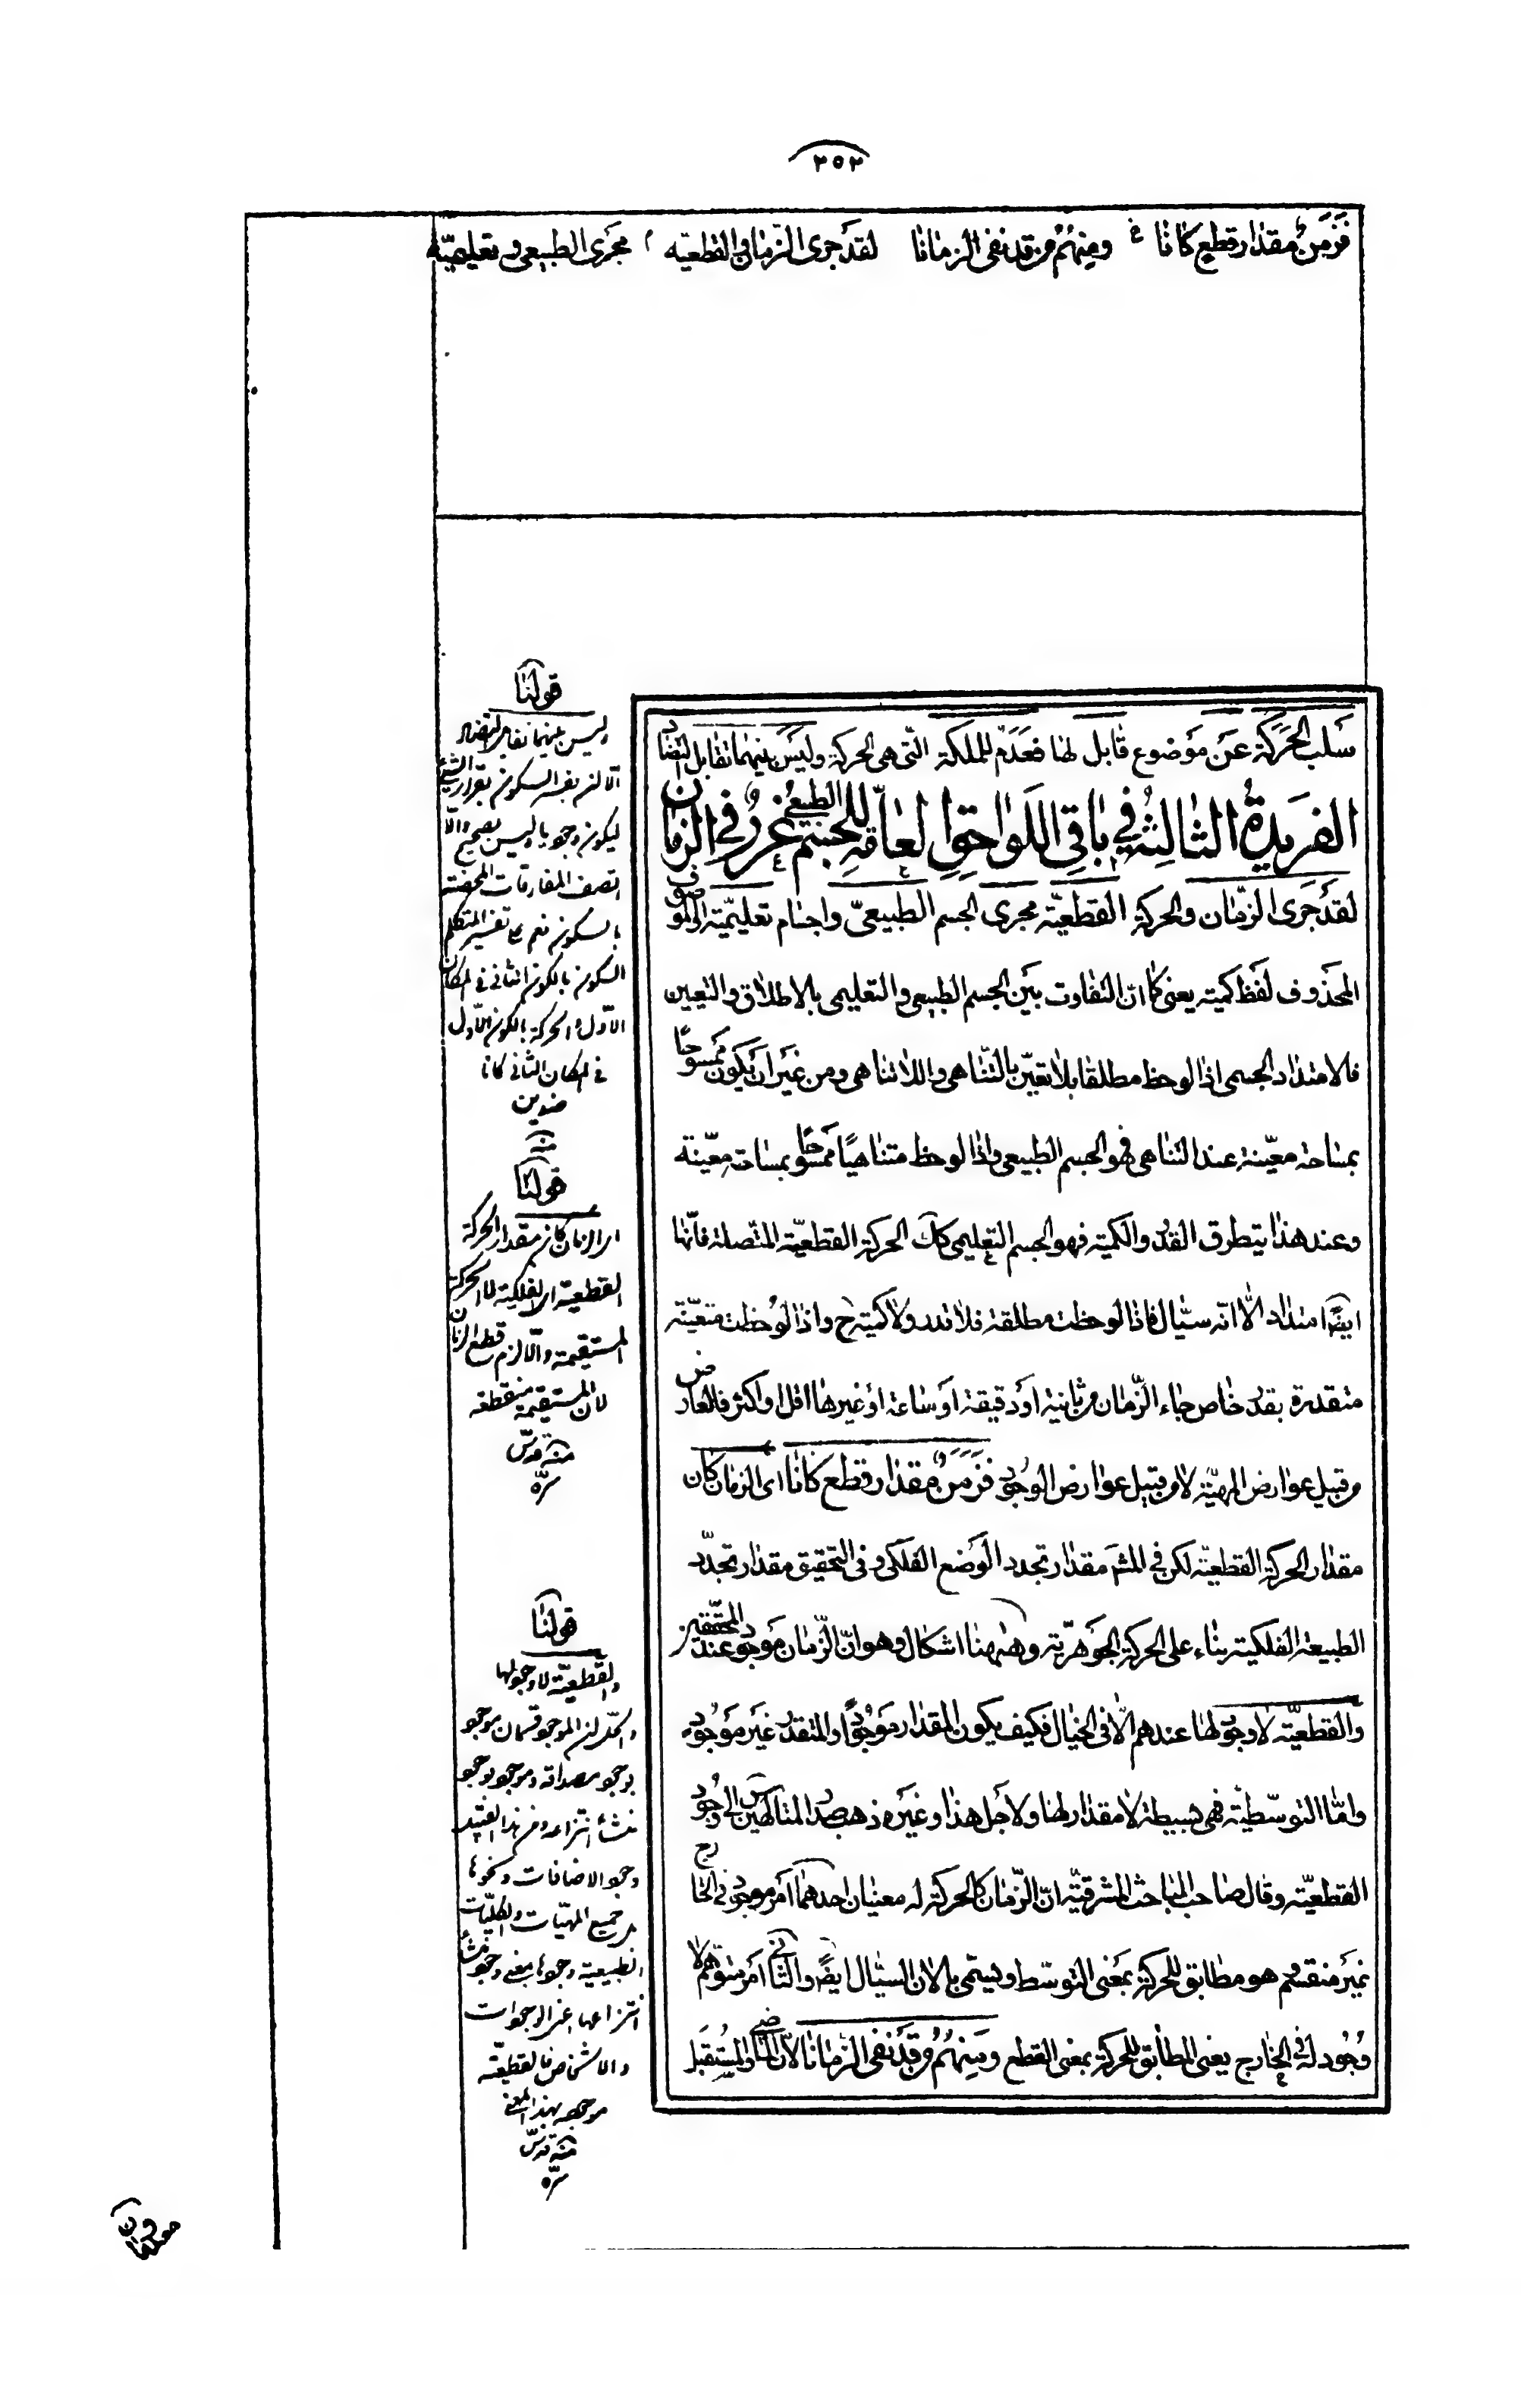 ٢٥٢
فزمن مقدار قطع كانا ومنهم من قد نفى الزمانا لقد جرى الزمان والقطعيّه مجرى الطبيعى وتعليميّه
سلب الحركة عن موضوع قابل لها فعدم للملكة التّى هى الحركة وليس بينهما تقابل التضاد
الفريدة الثالثة في باقى اللواحق العامّة للجسم الطبيعى غرر في الزمان
لقد جرى الزّمان والحركة القطعيّة مجرى الجسم الطبيعىّ واجسام تعليميّة الموصوف
المحذوف لفظ كميته يعنى كما انّ التفاوت بين الجسم الطبيعى والتعليمى بالاطلاق والتعيين
فالامتداد الجسمى اذا لوحظ مطلقا بلا تعيّن بالتّناهى واللاتناهى ومن غير ان يكون ممسوحا
بمساحة معيّنة عند التناهى فهو الجسم الطبيعى واذا لوحظ متناهيا ممسوحا بمساحة معيّنة
وعند هذا يتطرق القدر والكمية فهو الجسم التعليمى كك الحركة القطعيّة المتّصلة فانّها
ايضا امتداد الّا انّه سيّال فاذا لوحظت مطلقة فلا قدر ولا كمية ح واذا لوحظت متعيّنة
متقدرة بقدر خاص جاء الزّمان من ثانية او دقيقة او ساعة او غيرها اقل او اكثر فالعارض
من قبيل عوارض المهيّة لا من قبيل عوارض الوجود فزمن مقدار قطع كانا اى الزمان كان
مقدار الحركة القطعيّة لكن في المشهَر مقدار تجدد الوضع الفلكى وفى التحقيق مقدار تجدّد
الطبيعة الفلكية بناء على الحركة الجوهريّة وههنا اشكال وهو انّ الزّمان موجود عند المحققين
والقطعيّة لا وجود لها عندهم الّا فى الخيال فكيف يكون المقدار موجودًا والمتقدر غير موجود
وامّا التوسّطيّة فهى بسيطة لا مقدار لها ولاجل هذا وغيره ذهب صدر المتالهين س الى وجود
القطعيّة وقال صاحب المباحث المشرقيّة انّ الزّمان كالحركة له معنيان احدهما امر موجود فى الخارج
غير منقسم هو مطابق للحركة بمعنى التوسّط ويسمّى بالان السيّال ايضًا والثانى امر متوهّم لا
وجود له في الخارج يعنى المطابق للحركة بمعنى القطع ومنهم من قد نفى الزمانا لانّ الماضى والمستقبل
قولنا
وليس بينهما تقابل التضاد
الّا لزم تفسير السكون بقرار الشئ
ليكون وجوديا وليس بصحيح والّا
اتصف المفارقات المحضة
بالسكون نعم على تفسير المتكلم
السكون بالكون الثانى فى المكان
الاوّل والحركة بالكون الاوّل
فى المكان الثانى كانا
ضدين
منه
قولنا
اى الزمان كان مقدار الحركة
القطعيّة اى الفلكية لا الحركة
المستقيمة والّا لزم قطع الزمان
لان المستقيمة منقطعة
منه قدّس
سرّه
قولنا
والقطعيّة لا وجود لها
والحلّ ان الموجود قسمان موجود
بوجود مصداقه وموجود بوجود
منشأ انتزاعه ومن هذا القبيل
وجود الاضافات ونحوها
بل جميع المهيّات والكليّات
الطبيعية وجودها بمعنى وجود منشأ
انتزاعها اعنى الوجودات
والاشخاص فالقطعيّة
موجودة بهذا المعنى
منه قدّس
سرّه